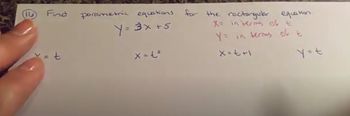 116 Find parametric equations for the rectangular equation
y = 3x + 5
x = in terms of t
y = in terms of t
x = t
x = t²
x = t + 1
y = t